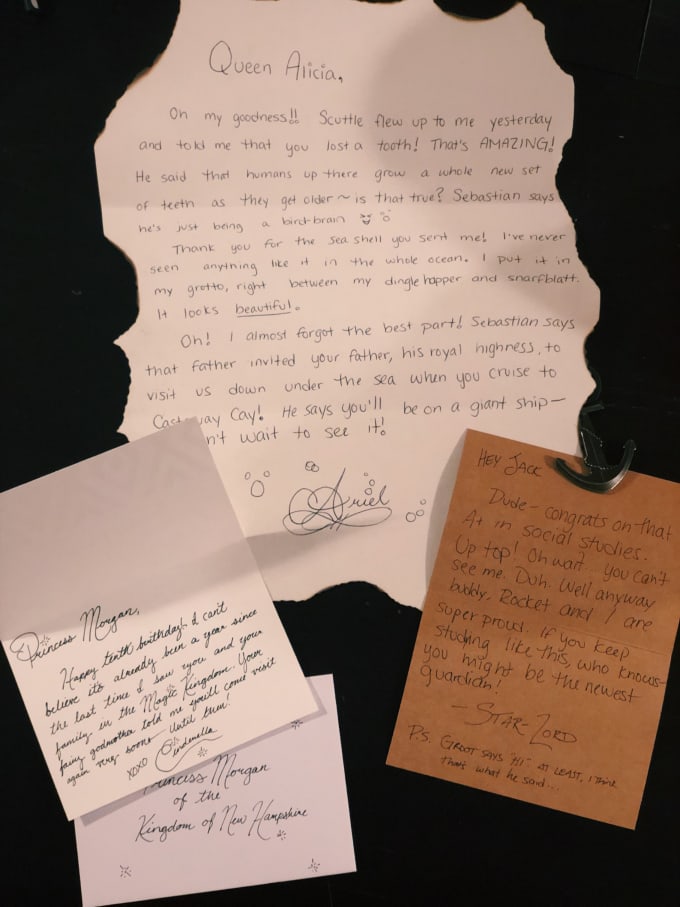 Queen Alicia,
Oh my goodness!! Scuttle flew up to me yesterday
and told me that you lost a tooth! That's AMAZING!
He said that humans up there grow a whole new set
of teeth as they get older ~ is that true? Sebastian says
he's just being a bird-brain
Thank you for the sea shell you sent me! I've never
seen anything like it in the whole ocean. I put it in
my grotto, right between my dinglehopper and snarfblatt.
It looks beautiful.
Oh! I almost forgot the best part! Sebastian says
that father invited your father, his royal highness, to
visit us down under the sea when you cruise to
Cast way Cay! He says you'll be on a giant ship—
n't wait to see it!
Ariel
Princess Morgan,
Happy tenth birthday! I can't
believe it's already been a year since
the last time I saw you and your
family in the Magic Kingdom. Your
fairy godmother told me you'll come visit
again very soon. Until then!
XOXO Cinderella
rincess Morgan
of the
Kingdom of New Hampshire
HEY JACK
Dude- congrats on that
A+ in social studies.
Up top! Oh wait... you can't
see me. Duh. Well anyway
buddy, Rocket and I are
super proud. If you keep
studying like this, who knows-
you might be the newest
guardian!
- STAR-LORD
P.S. GROOT SAYS "HI". AT LEAST, I think
that's what he said...